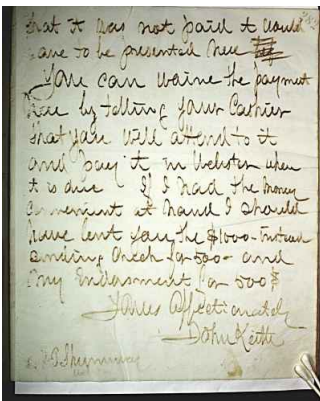 that it was not paid it would
have to be presented here
You can waive the payment
here by telling your Cashier
that you will attend to it
and pay it in Webster when
it is due If I had the money
convenient at hand I should
have lent you the $1000- instead
sending check for 500- and
my Endorsment for 500$
Yours Affectionately
John Keith